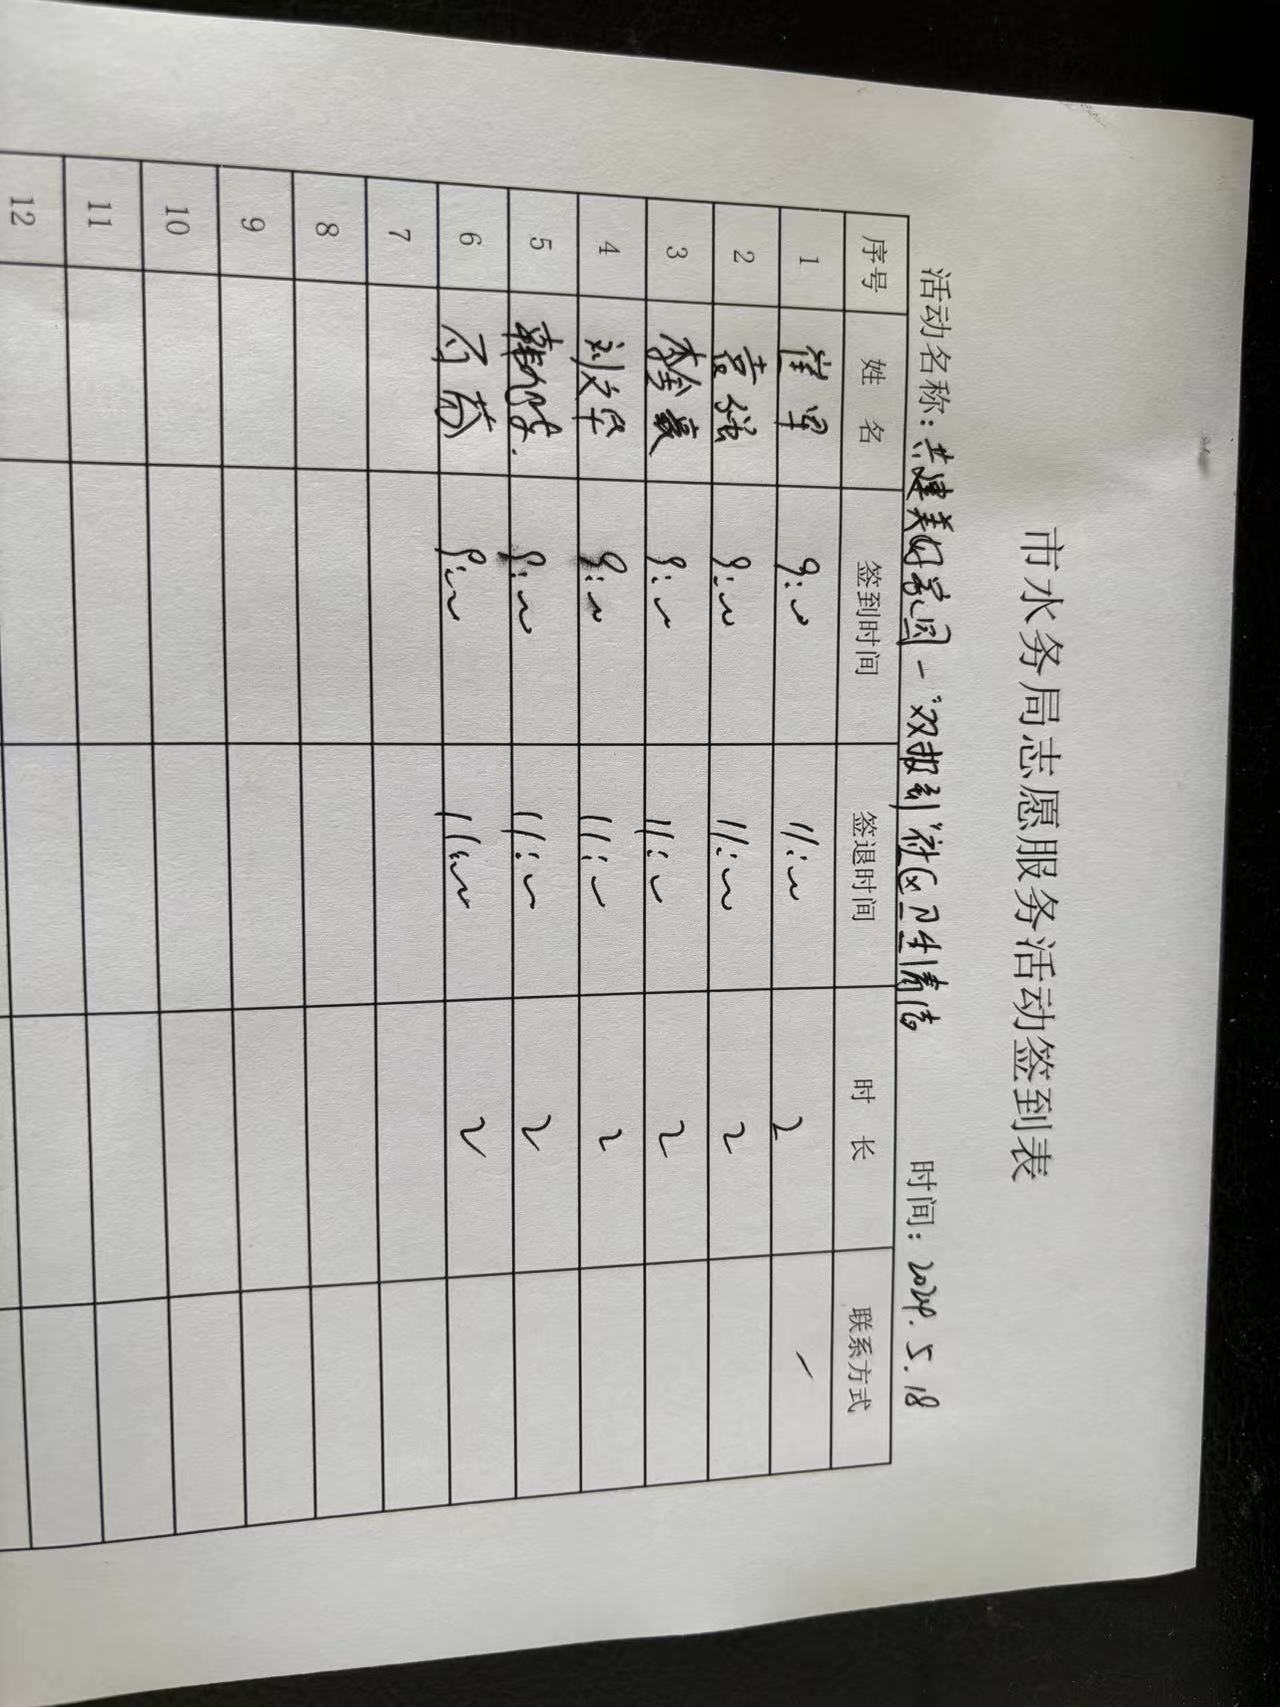 市水务局志愿服务活动签到表
活动名称：共建美好家园-"双报到"社区卫生清洁 时间：2024.5.18
序号 姓名 签到时间 签退时间 时长 联系方式
1 崔军 9:00 11:00 2
2 袁强 9:00 11:00 2
3 李金岚 9:00 11:00 2
4 刘文华 9:00 11:00 2
5 9:00 11:00 2
6 9:00 11:00 2
7
8
9
10
11
12